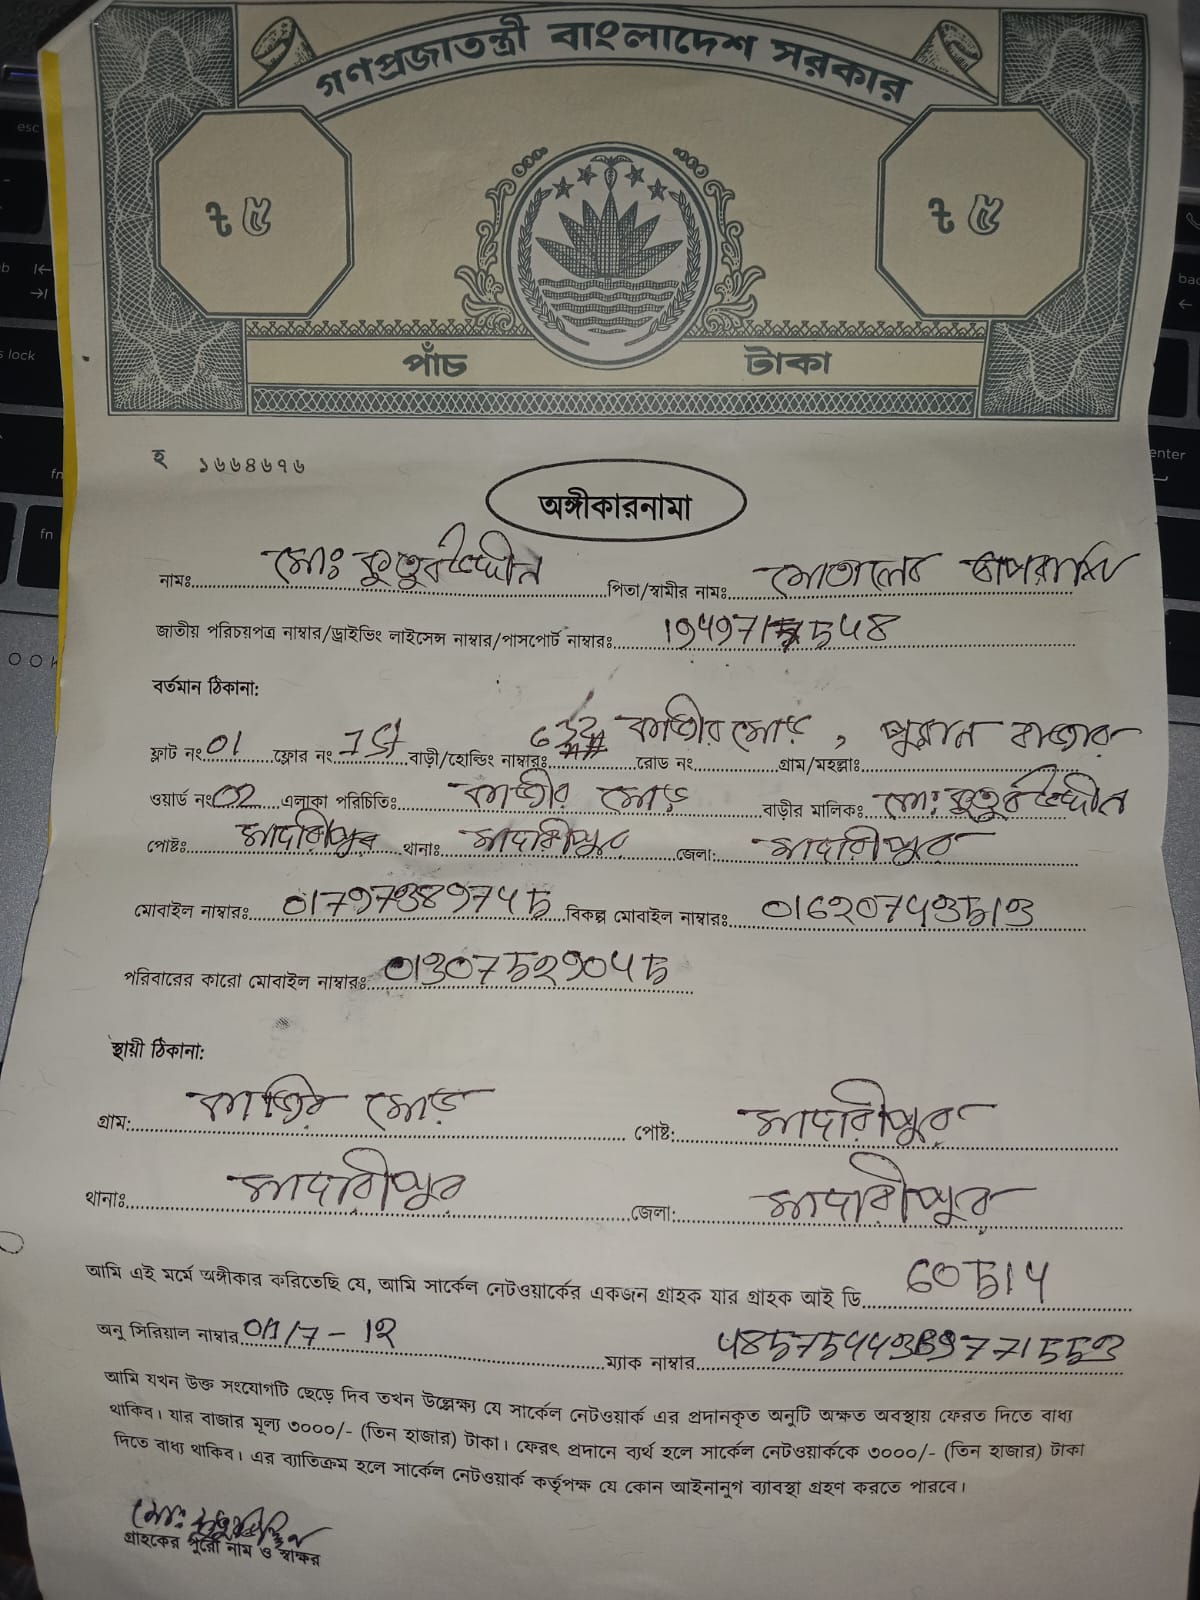 গণপ্রজাতন্ত্রী বাংলাদেশ সরকার
৳ ৫ ৳ ৫
পাঁচ টাকা
হ ১৬৬৪৬৭৬
অঙ্গীকারনামা
নামঃ মোঃ কুতুবউদ্দীন পিতা/স্বামীর নামঃ মোতালেব
জাতীয় পরিচয়পত্র নাম্বার/ড্রাইভিং লাইসেন্স নাম্বার/পাসপোর্ট নাম্বারঃ
বর্তমান ঠিকানা:
ফ্লাট নং 01 ফ্লোর নং 1st বাড়ী/হোল্ডিং নাম্বারঃ রোড নং গ্রাম/মহল্লাঃ কাজীর মোড়, পুরান বাজার
ওয়ার্ড নং 02 এলাকা পরিচিতিঃ কাজীর মোড় বাড়ীর মালিকঃ মোঃ কুতুবউদ্দীন
পোষ্টঃ মাদারীপুর থানাঃ মাদারীপুর জেলা: মাদারীপুর
মোবাইল নাম্বারঃ বিকল্প মোবাইল নাম্বারঃ
পরিবারের কারো মোবাইল নাম্বারঃ
স্থায়ী ঠিকানা:
গ্রাম: কাজির মোড় পোষ্ট: মাদারীপুর
থানাঃ মাদারীপুর জেলা: মাদারীপুর
আমি এই মর্মে অঙ্গীকার করিতেছি যে, আমি সার্কেল নেটওয়ার্কের একজন গ্রাহক যার গ্রাহক আই ডি
অনু সিরিয়াল নাম্বার ম্যাক নাম্বার
আমি যখন উক্ত সংযোগটি ছেড়ে দিব তখন উল্লেক্ষ্য যে সার্কেল নেটওয়ার্ক এর প্রদানকৃত অনুটি অক্ষত অবস্থায় ফেরত দিতে বাধ্য
থাকিব। যার বাজার মূল্য ৩০০০/- (তিন হাজার) টাকা। ফেরৎ প্রদানে ব্যর্থ হলে সার্কেল নেটওয়ার্ককে ৩০০০/- (তিন হাজার) টাকা
দিতে বাধ্য থাকিব। এর ব্যাতিক্রম হলে সার্কেল নেটওয়ার্ক কর্তৃপক্ষ যে কোন আইনানুগ ব্যাবস্থা গ্রহণ করতে পারবে।
মোঃ কুতুবউদ্দীন
গ্রাহকের পুরো নাম ও স্বাক্ষর